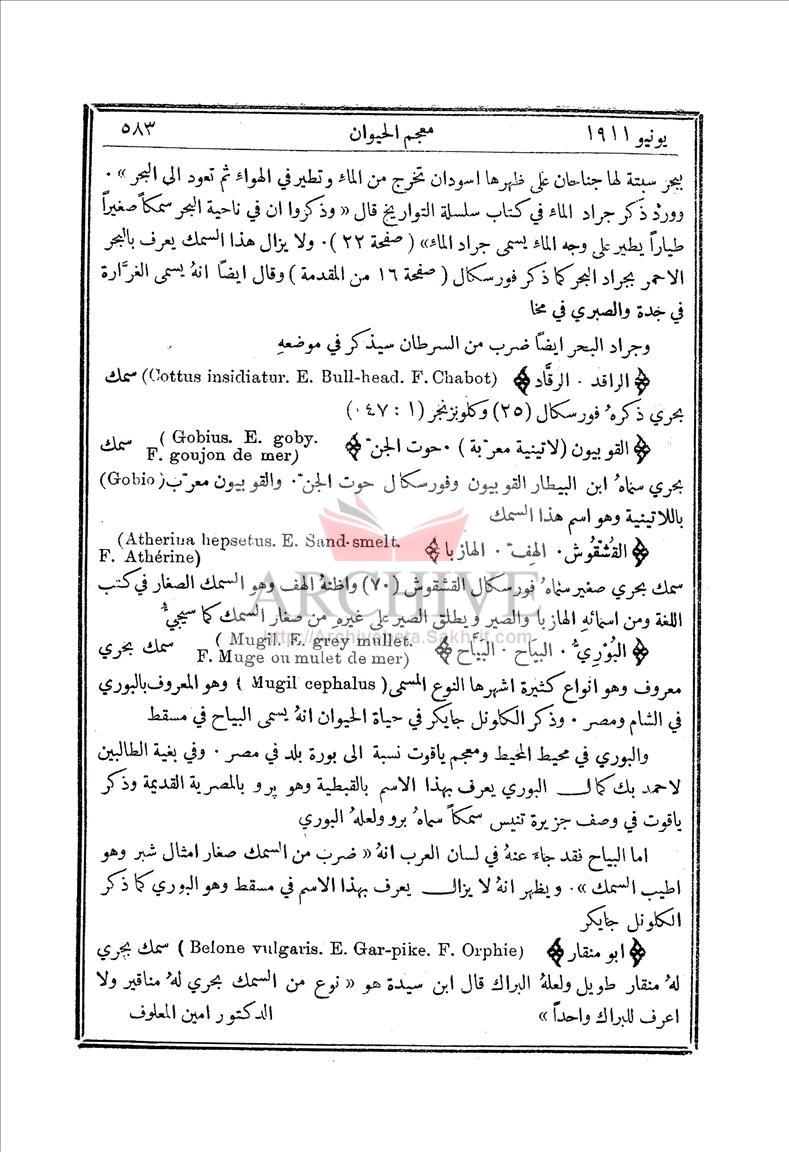 يونيو ١٩١١ معجم الحيوان ٥٨٣
ببحر سبتة لها جناحان على ظهرها اسودان تخرج من الماء وتطير في الهواء ثم تعود الى البحر » ٠
وورد ذكر جراد الماء في كتاب سلسلة التواريخ قال « وذكروا ان في ناحية البحر سمكاً صغيراً
طياراً يطير على وجه الماء يسمى جراد الماء» ( صفحة ٢٢ )٠ ولا يزال هذا السمك يعرف بالبحر
الاحمر بجراد البحر كما ذكر فورسكال ( صفحة ١٦ من المقدمة ) وقال ايضاً انهُ يسمى الغرَّارة
في جدة والصبري في مخا
وجراد البحر ايضاً ضرب من السرطان سيذكر في موضعهِ
﴿ الراقد ٠ الرقَّاد ﴾ (Cottus insidiatur. E. Bull-head. F. Chabot) سمك
بحري ذكرهُ فورسكال (٢٥) وكلونزنجر (١ : ٠٤٧)
﴿ القوبيون (لاتينية معرّبة ) ٠ حوت الجنّ ﴾ ( Gobius. E. goby. F. goujon de mer) سمك
بحري سماهُ ابن البيطار القوبيون وفورسكال حوت الجنّ ٠ والقوبيون معرّب (Gobio)
باللاتينية وهو اسم هذا السمك
﴿ القُشْقُوش ٠ الهِفّ ٠ الهازبا ﴾ (Atherina hepsetus. E. Sand-smelt. F. Athérine)
سمك بحري صغير سماهُ فورسكال القشقوش (٧٠) واظنهُ الهف وهو السمك الصغار في كتب
اللغة ومن اسمائهِ الهازبا والصير ويطلق الصير على غيرهِ من صغار السمك كما سيجيُّ
ARCHIVE
http://Archivebeta.Sakhrit.com
﴿ البُوْرِيُّ ٠ البَيَاح ٠ البيَّاح ﴾ ( Mugil. E. grey mullet. F. Muge ou mulet de mer) سمك بحري
معروف وهو انواع كثيرة اشهرها النوع المسمى ( Mugil cephalus ) وهو المعروف بالبوري
في الشام ومصر ٠ وذكر الكلونل جايكر في حياة الحيوان انهُ يسمى البياح في مسقط
والبوري في محيط المحيط ومعجم ياقوت نسبة الى بورة بلد في مصر ٠ وفي بغية الطالبين
لاحمد بك كمال البوري يعرف بهذا الاسم بالقبطية وهو پرو بالمصرية القديمة وذكر
ياقوت في وصف جزيرة تنيس سمكاً سماهُ برو ولعلهُ البوري
اما البياح فقد جاءَ عنهُ في لسان العرب انهُ « ضرب من السمك صغار امثال شبر وهو
اطيب السمك »٠ ويظهر انهُ لا يزال يعرف بهذا الاسم في مسقط وهو البوري كما ذكر
الكلونل جايكر
﴿ ابو منقار ﴾ ( Belone vulgaris. E. Gar-pike. F. Orphie) سمك بحري
لهُ منقار طويل ولعلهُ البراك قال ابن سيدة هو « نوع من السمك بحري لهُ مناقير ولا
اعرف للبراك واحداً » الدكتور امين المعلوف